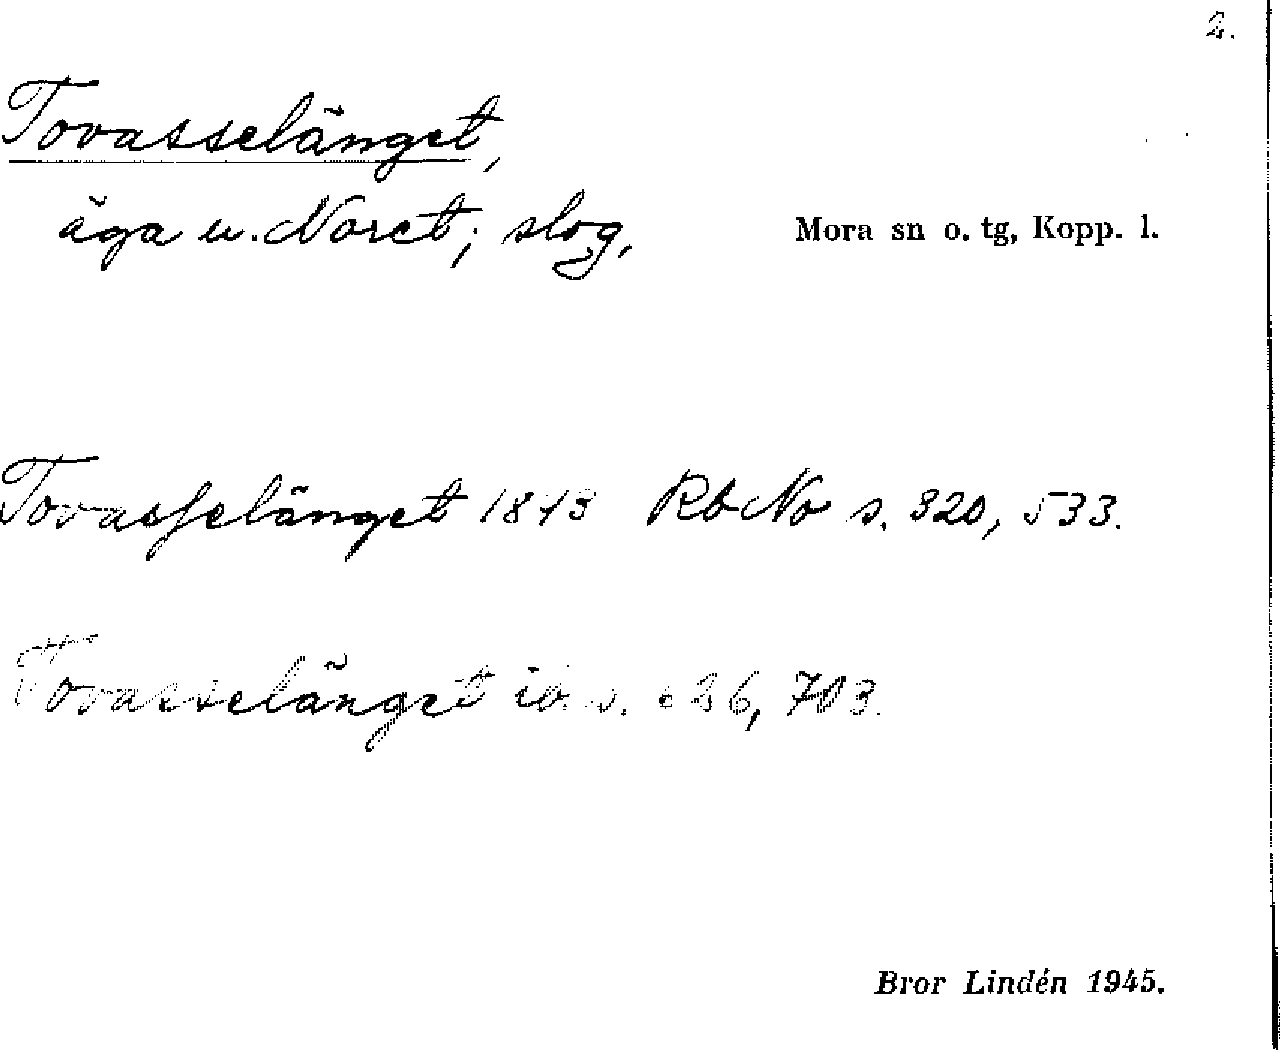 2.
Tovasselänget,
äga u. Noret; slog,
Mora sn o. tg, Kopp. l.
Tovasselänget 1843 Rb No s. 320, 533.
Tovasselänget ib. s. 703.
Bror Lindén 1945.